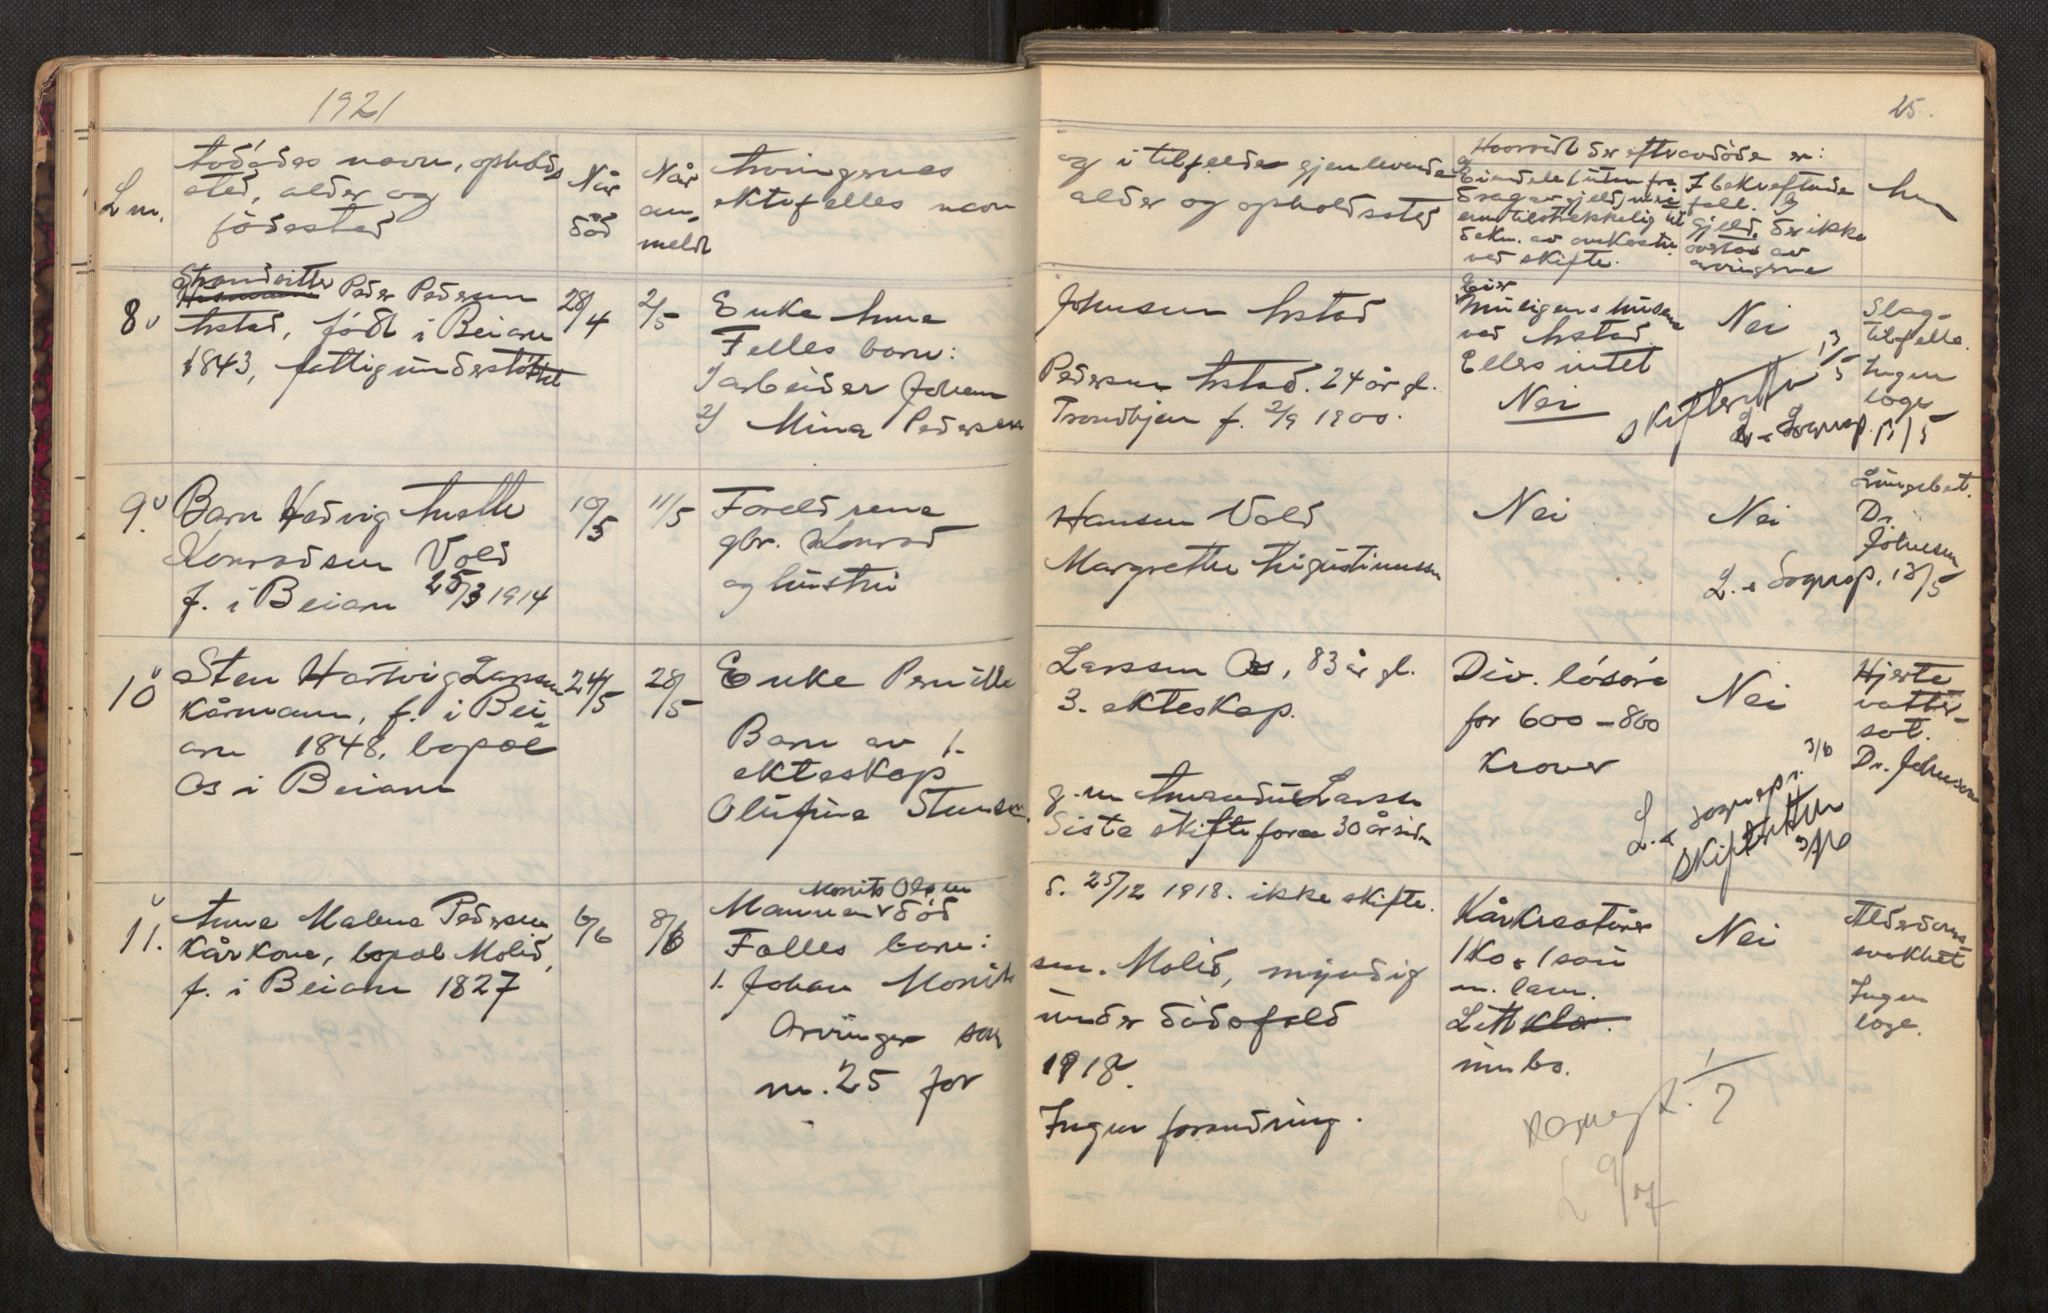 1921
25.
L nr.
Avdødes navn, opholds
sted, alder og
fødested
Når
død
Når
an-
meldt
Arvingernes
ektefelles navn
og i tilfelde gjenlevende
alder og opholdssted
Hvorvidt der efter avdøde er:
ved skifte.
gjeld, der ikke
overtas av
arvingerne
8
Strandsitter
Peder Pedersen
født i Beiarn
1843, fattigunderstøttet
28/4
2/5
Enke Anna
Felles barn:
1/ arbeider Johan
2/ Mina Pedersen
Johnsen
Pedersen 24 år gl.
Trondhjem f. 2/9 1900.
Eier
muligens husene
ved
Ellers intet
Nei
Nei
Skifteretten 13/5
L. Sognep. 13/5
Slag-
tilfelle.
Ingen
læge
9.
Barn Hedvig Anette
Konradsen Vold
f. i Beiarn 25/3 1914
10/5
11/5
Foreldrene
gbr. Konrad
og hustru
Hansen Vold
Margrethe Augustinussen
Nei
Nei
L. Sognep. 13/5
Lungebet.
Dr.
Johnsen
10
Sten Hartvig Larssen
kårmann, f. i Bei-
arn 1848, bopæl
Os i Beiarn
24/5
28/5
Enke Pernille
Barn av 1.
ekteskap
Olufine Stensen
Larssen Os, 83 år gl.
3. ekteskap.
g. m. Larsen
Siste skifte for ca 30 år siden
Div. løsøre
for 600-800
kroner
Nei
L. Sognep. 3/6
Skifteretten
3/6
Hjerte
vatter-
sot.
Dr. Johnsen
11.
Anna Malena Pedersen
kårkone, bopæl Molid,
f. i Beiarn 1827
6/6
8/6
Monits Olsen
Mannen død
Felles barn:
1. Johan Monit
Arvinger som
nr. 25 for
d. 25/12 1918. ikke skifte.
sen. Molid, myndig
under dødsfald
1918.
Ingen forandring.
Kårkreaturer
1 ko, 1 sau
m. lam.
Litt klær.
innbo.
Nei
Alderdoms-
svakhet
Ingen
læge.
1/7
L 9/7